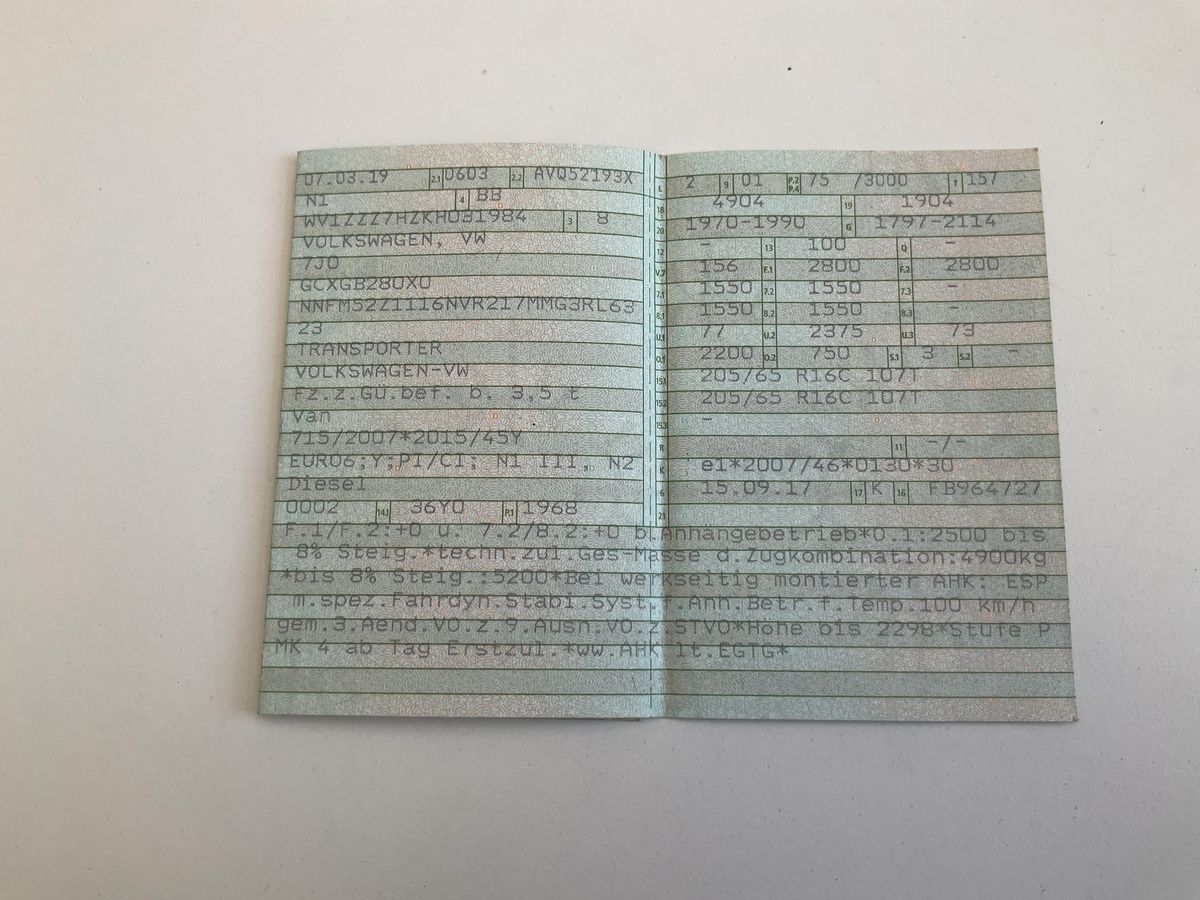 07.03.19 2.1 0603 2.2 AVQ52193X
N1 4 BB
WV1ZZZ7HZKH031984 3 8
VOLKSWAGEN, VW
7J0
GCXGB280X0
NNFM52Z1116NVR217MMG3RL63
23
TRANSPORTER
VOLKSWAGEN-VW
Fz.z.Gü.bef. b. 3,5 t
Van
715/2007*2015/45Y
EURO6;Y;PI/CI; N1 III, N2
Diesel
0002 14.1 36Y0 P.1 1968
L 2 9 01 P.2 P.4 75 /3000 T 157
18 4904 19 1904
20 1970-1990 G 1797-2114
12 - 13 100 Q -
V.7 156 F.1 2800 F.2 2800
7.1 1550 7.2 1550 7.3 -
8.1 1550 8.2 1550 8.3 -
U.1 77 U.2 2375 U.3 73
O.1 2200 O.2 750 S.1 3 S.2 -
15.1 205/65 R16C 107T
15.2 205/65 R16C 107T
15.3 -
R 11 -/-
K e1*2007/46*0130*30
6 15.09.17 17 K 16 FB964727
21
F.1/F.2:+0 u. 7.2/8.2:+0 b.Anhängebetrieb*O.1:2500 bis
8% Steig.*techn.zul.Ges-Masse d.Zugkombination:4900kg
*bis 8% Steig.:5200*Bei werkseitig montierter AHK: ESP
m.spez.Fahrdyn.Stabi.Syst. Anh.Betr.f.Temp.100 km/h
gem.3.Aend.VO.z.9.Ausn.VO.z.STVO*Höhe bis 2298*Stufe P
MK 4 ab Tag Erstzul.*ww.AHK lt.EGTG*